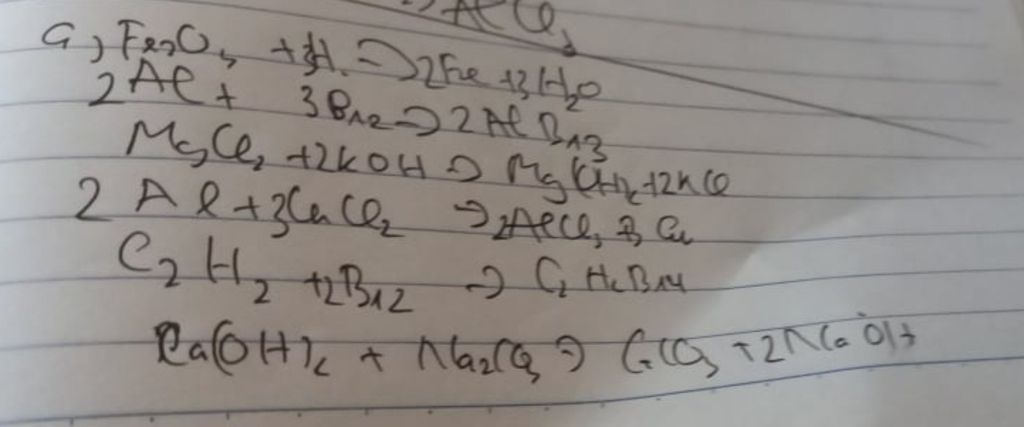 AlCl3
a, Fe2O3 + 3H2 → 2Fe + 3H2O
2Al + 3Br2 → 2AlBr3
MgCl2 + 2KOH → Mg(OH)2 + 2KCl
2Al + 3CuCl2 → 2AlCl3 + 3Cu
C2H2 + 2Br2 → C2H2Br4
Ca(OH)2 + Na2CO3 → CaCO3 + 2NaOH